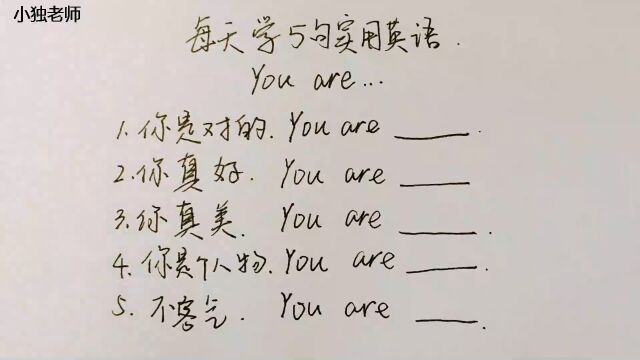 小独老师
每天学5句实用英语.
You are...
1.你是对的. You are ____.
2.你真好. You are ____
3.你真美. You are ____.
4.你是个人物. You are ____.
5.不客气. You are ____.